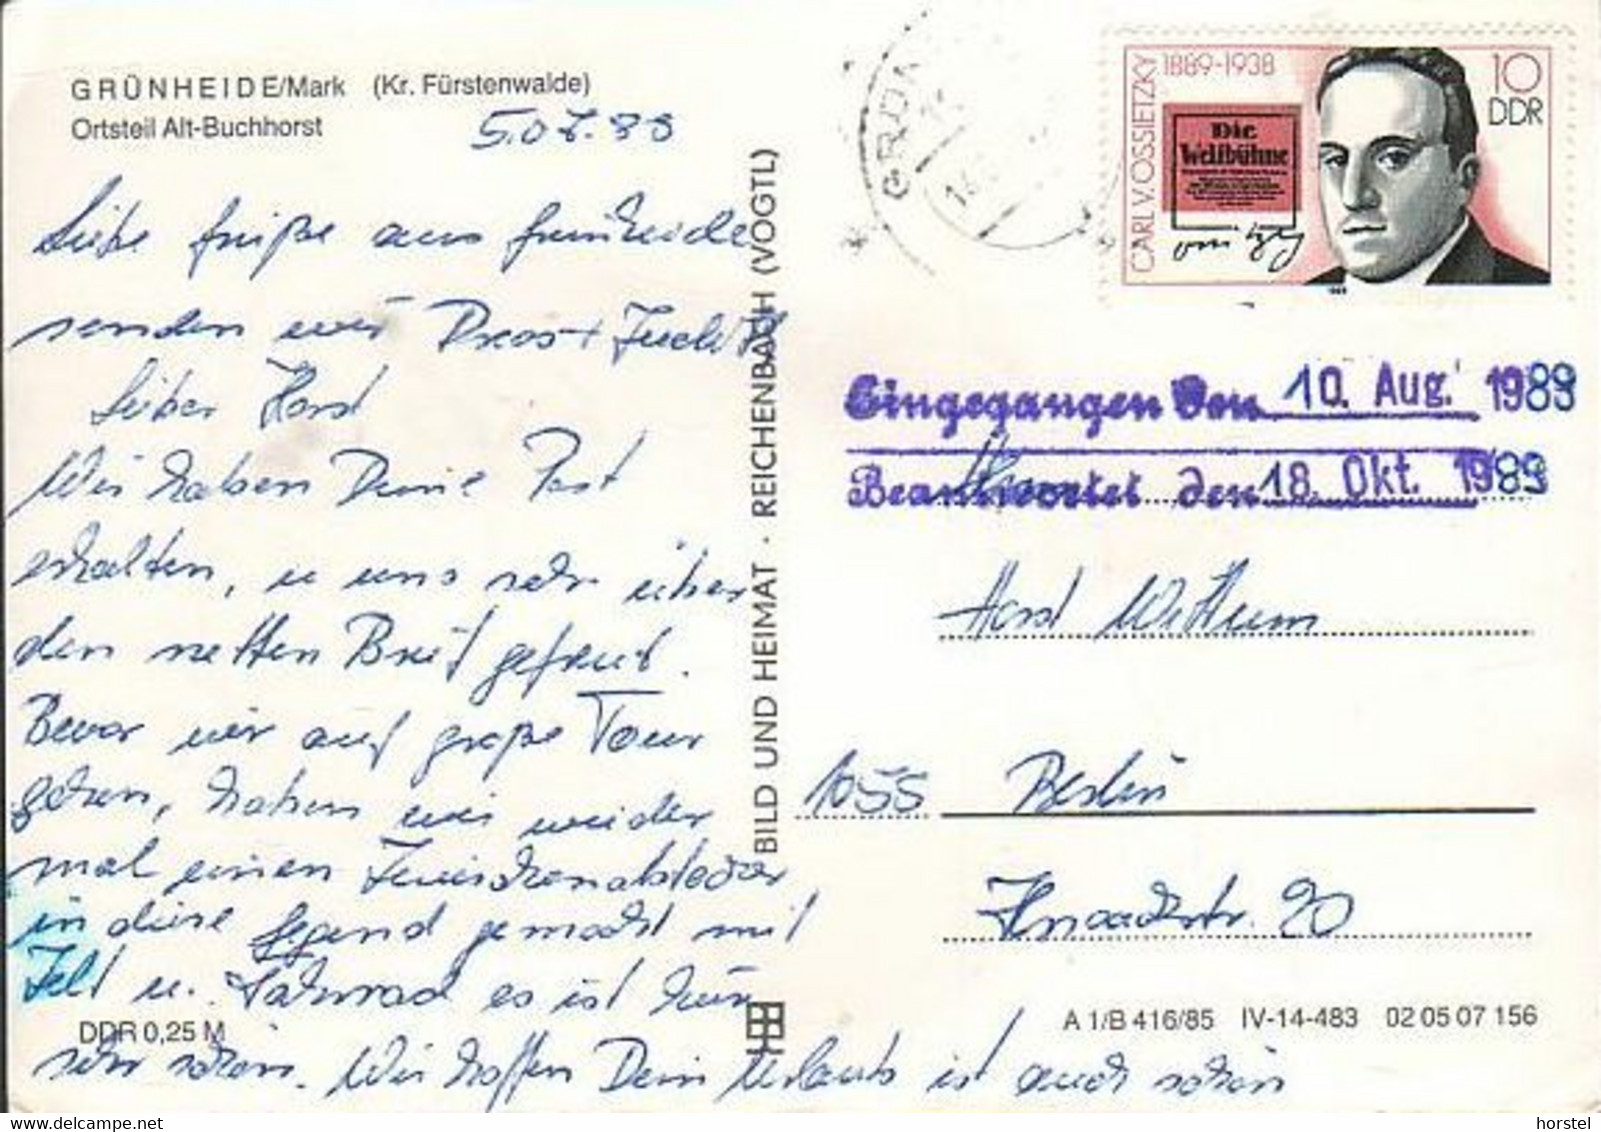 GRÜNHEIDE/Mark (Kr. Fürstenwalde)
Ortsteil Alt-Buchhorst
Liebe Grüße aus Grünheide
senden wir
Lieber Horst
Wir haben Deine Post
erhalten, u uns sehr über
den netten Brief gefreut.
Bevor wir auf große Tour
gehen, haben wir wieder
mal einen Zwischenabstecher
in diese Gegend gemacht mit
Zelt u. Fahrrad es ist hier
DDR 0,25 M
sehr schön. Wir hoffen Dein Urlaub ist auch schön
BILD UND HEIMAT · REICHENBACH (VOGTL)
CARL V. OSSIETZKY 1889-1938
10
DDR
Die
Weltbühne
Eingegangen den 10. Aug. 1989
Beantwortet den 18. Okt. 1989
Herrn
Horst
1055 Berlin
Knaackstr. 90
A 1/B 416/85 IV-14-483 02 05 07 156
horstel